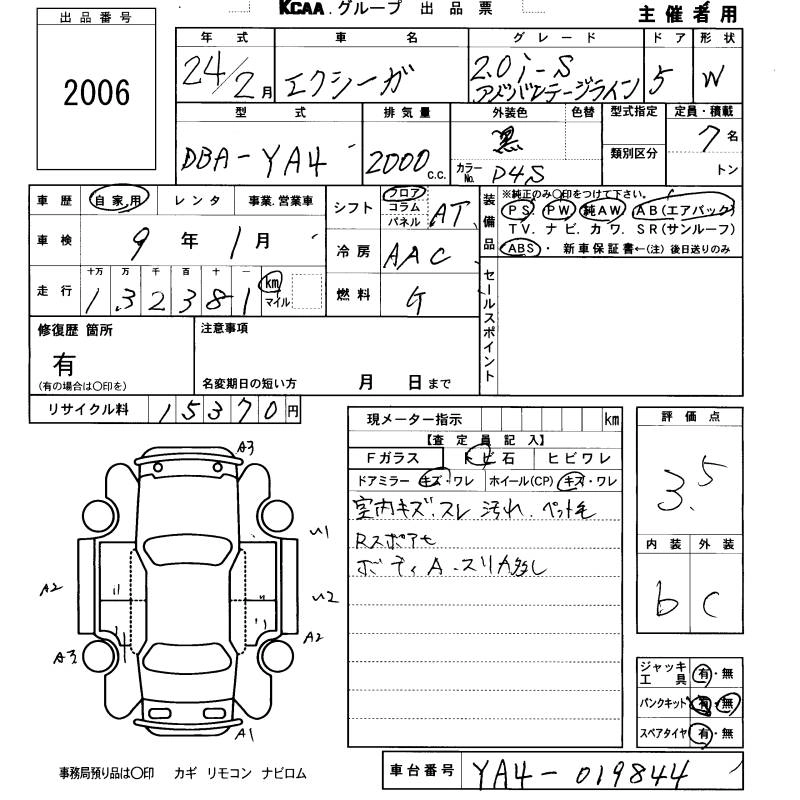 KCAA.グループ 出品票
主催者用
出品番号
2006
年式 車名 グレード ドア 形状
24/2月 エクシーガ 2.0i-S アドバンテージライン 5 W
型式 排気量 外装色 色替 型式指定 定員・積載
DBA-YA4 2000c.c. 黒 7名
カラーNo. D4S 類別区分 トン
車歴 自家用 レンタ 事業.営業車
シフト フロア コラム パネル AT
装備品 ※純正のみ〇印をつけて下さい。
PS. PW. 純AW. AB(エアバック)
TV. ナビ. カワ. SR(サンルーフ)
ABS・ 新車保証書←(注)後日送りのみ
車検 9年1月
冷房 AAC
走行 十万 万 千 百 十 一
132381 km マイル
燃料 G
セールスポイント
修復歴 箇所
有
(有の場合は〇印を)
注意事項
名変期日の短い方 月 日まで
リサイクル料 15370円
現メーター指示 km
【査定員記入】
Fガラス トビ石 ヒビワレ
ドアミラー キズ・ワレ ホイール(CP) キズ・ワレ
室内キズ.スレ 汚れ.ペット毛
Rスポアセ
ボディA.スリカ多し
評価点
3.5
内装 外装
b C
A3
A2
A3
A2
A1
ジャッキ工具 有・無
パンクキット 有・無
スペアタイヤ 有・無
事務局預り品は〇印 カギ リモコン ナビロム
車台番号 YA4-019844